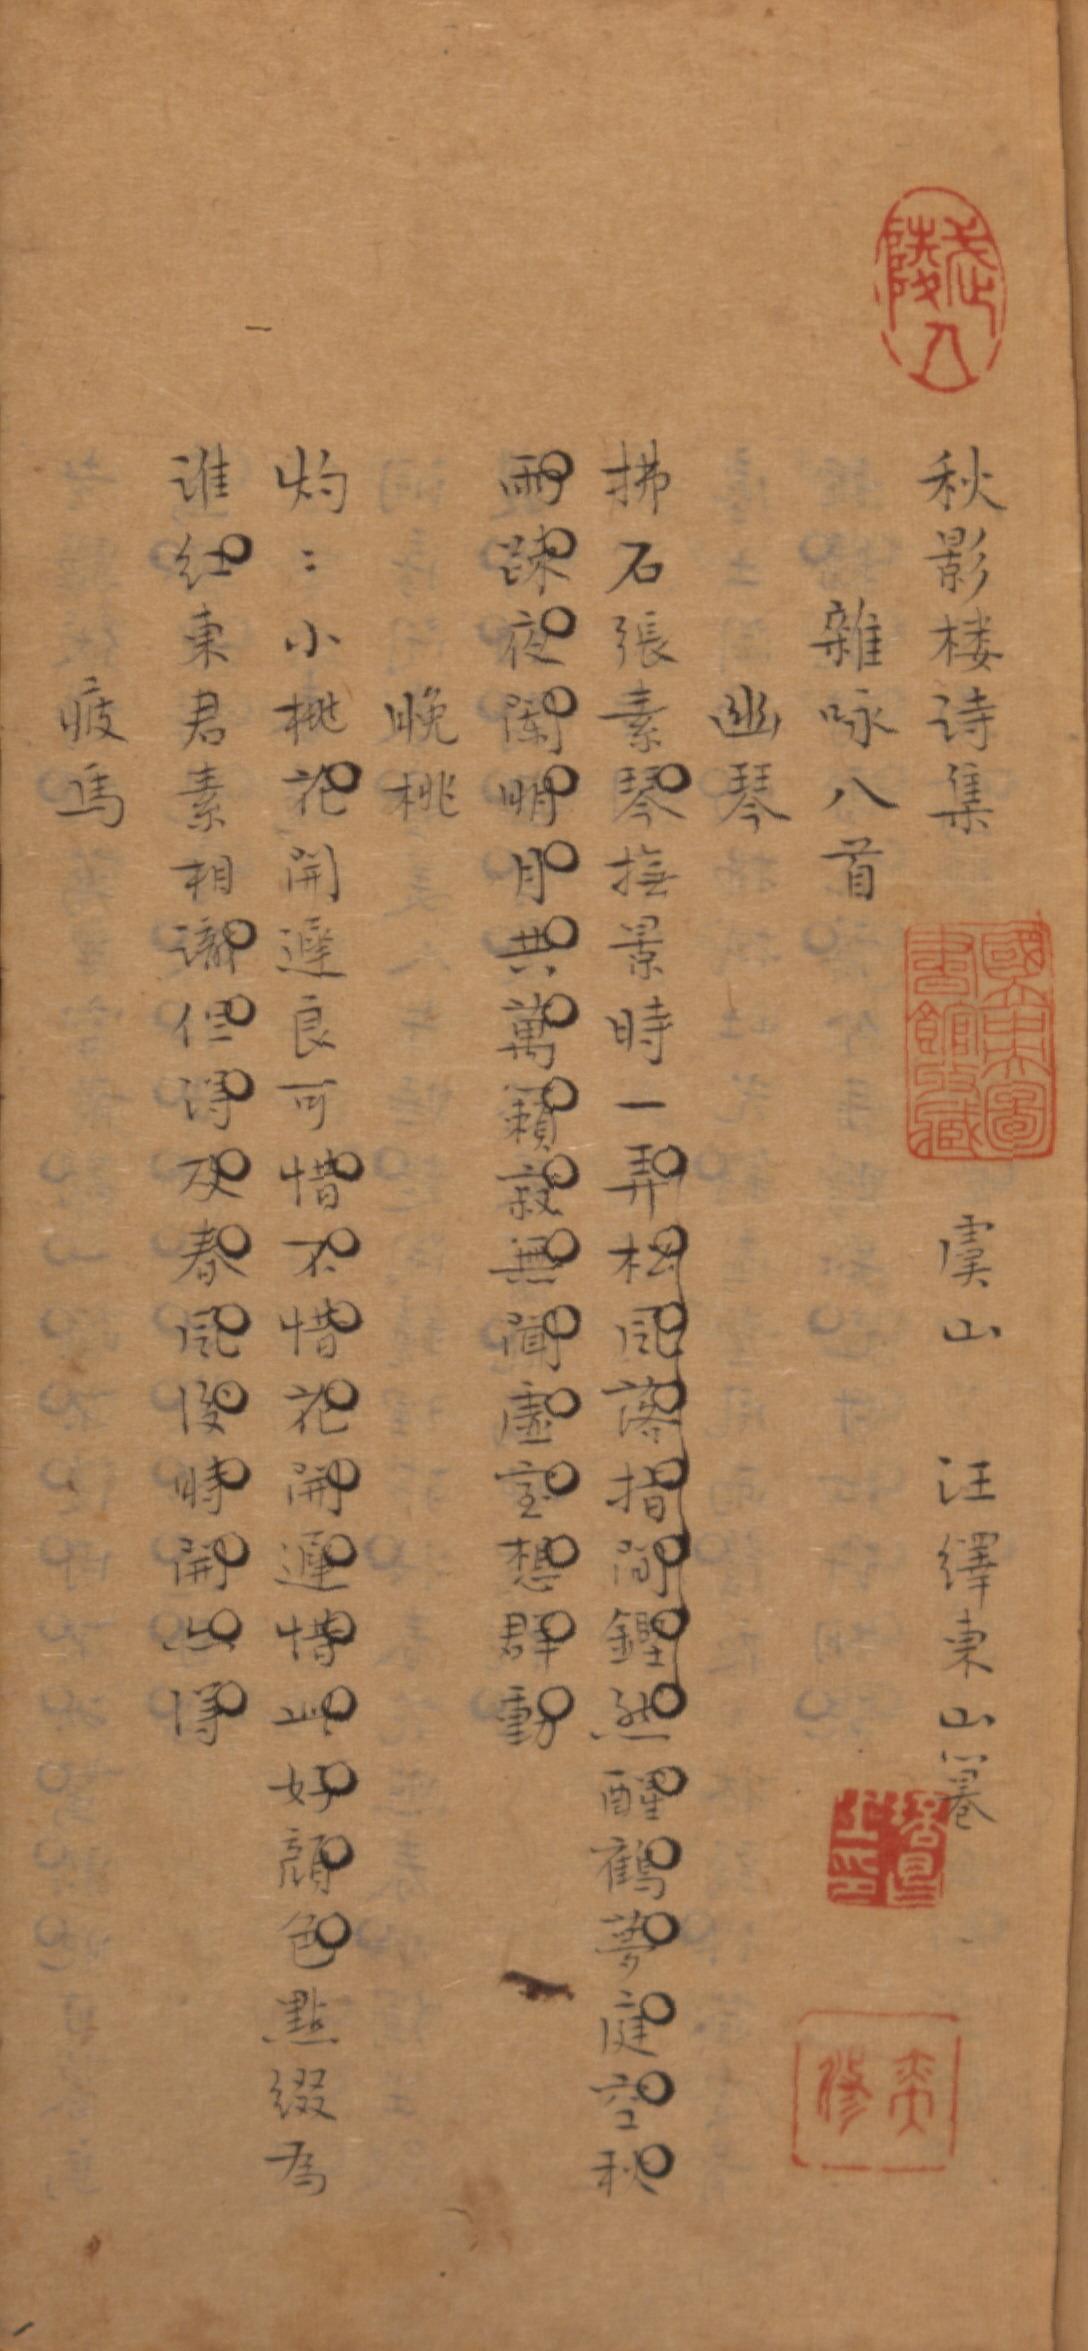 秋影楼诗集　虞山　汪繹東山著
雜咏八首
幽琴
拂石張素琴撫景時一弄松風落指間鏗然醒鶴夢庭空秋
雨疎夜闌明月共萬籟寂無聞虛室想群動
晚桃
灼〻小桃花開遲良可惜不惜花開遲惜此好顔色點綴為
誰紅東君素相識但得及春風後時開亦得
疲馬
國立中央圖書館藏